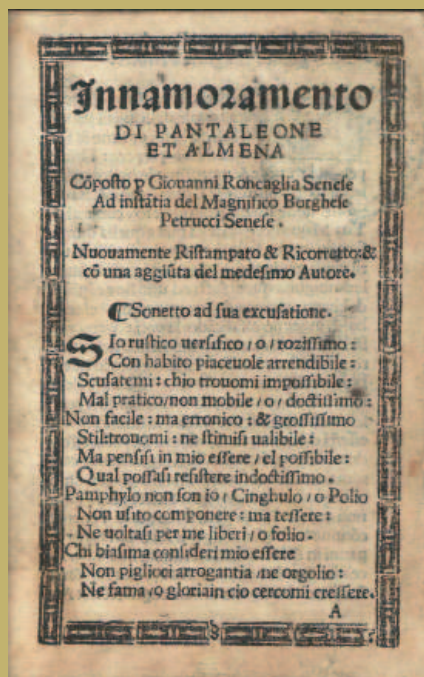 Innamoramento
DI PANTALEONE
ET ALMENA
Cõposto p Giouanni Roncaglia Senese
Ad instãtia del Magnifico Borghese
Petrucci Senese.
Nuouamente Ristampato & Ricorretto:&
cõ una aggiũta del medesimo Autore.
¶ Sonetto ad sua excusatione.
SIo rustico uersifico / o / rozissimo:
Con habito piaceuole arrendibile:
Scusatemi: chio trouomi impossibile:
Mal pratico/non mobile / o / doctissimo:
Non facile: ma erronico: & grossissimo
Stil:trouomi: ne stimisi ualibile:
Ma pensisi in mio essere / el possibile:
Qual possasi resistere indoctissimo.
Pamphylo non son io / Cinghulo / o Polio
Non usito componere: ma tessere:
Ne uoltasi per me liberi / o folio.
Chi biasima consideri mio essere
Non piglioci arrogantia /ne orgolio:
Ne fama /o gloriain cio cercomi cressere.
A